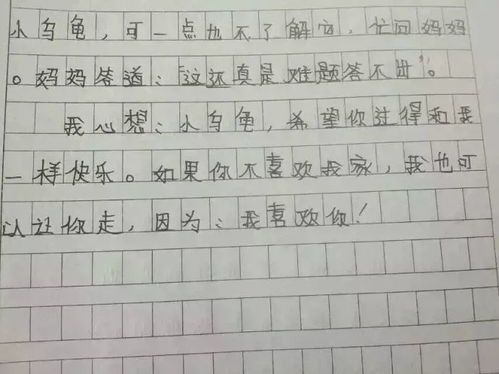 小乌龟，可一点也不了解它，忙问妈妈
。妈妈答道：这还真是难题答不出”。
我心想：小乌龟，希望你过得和我
一样快乐。如果你不喜欢我家，我也可
以让你走，因为：我喜欢你！